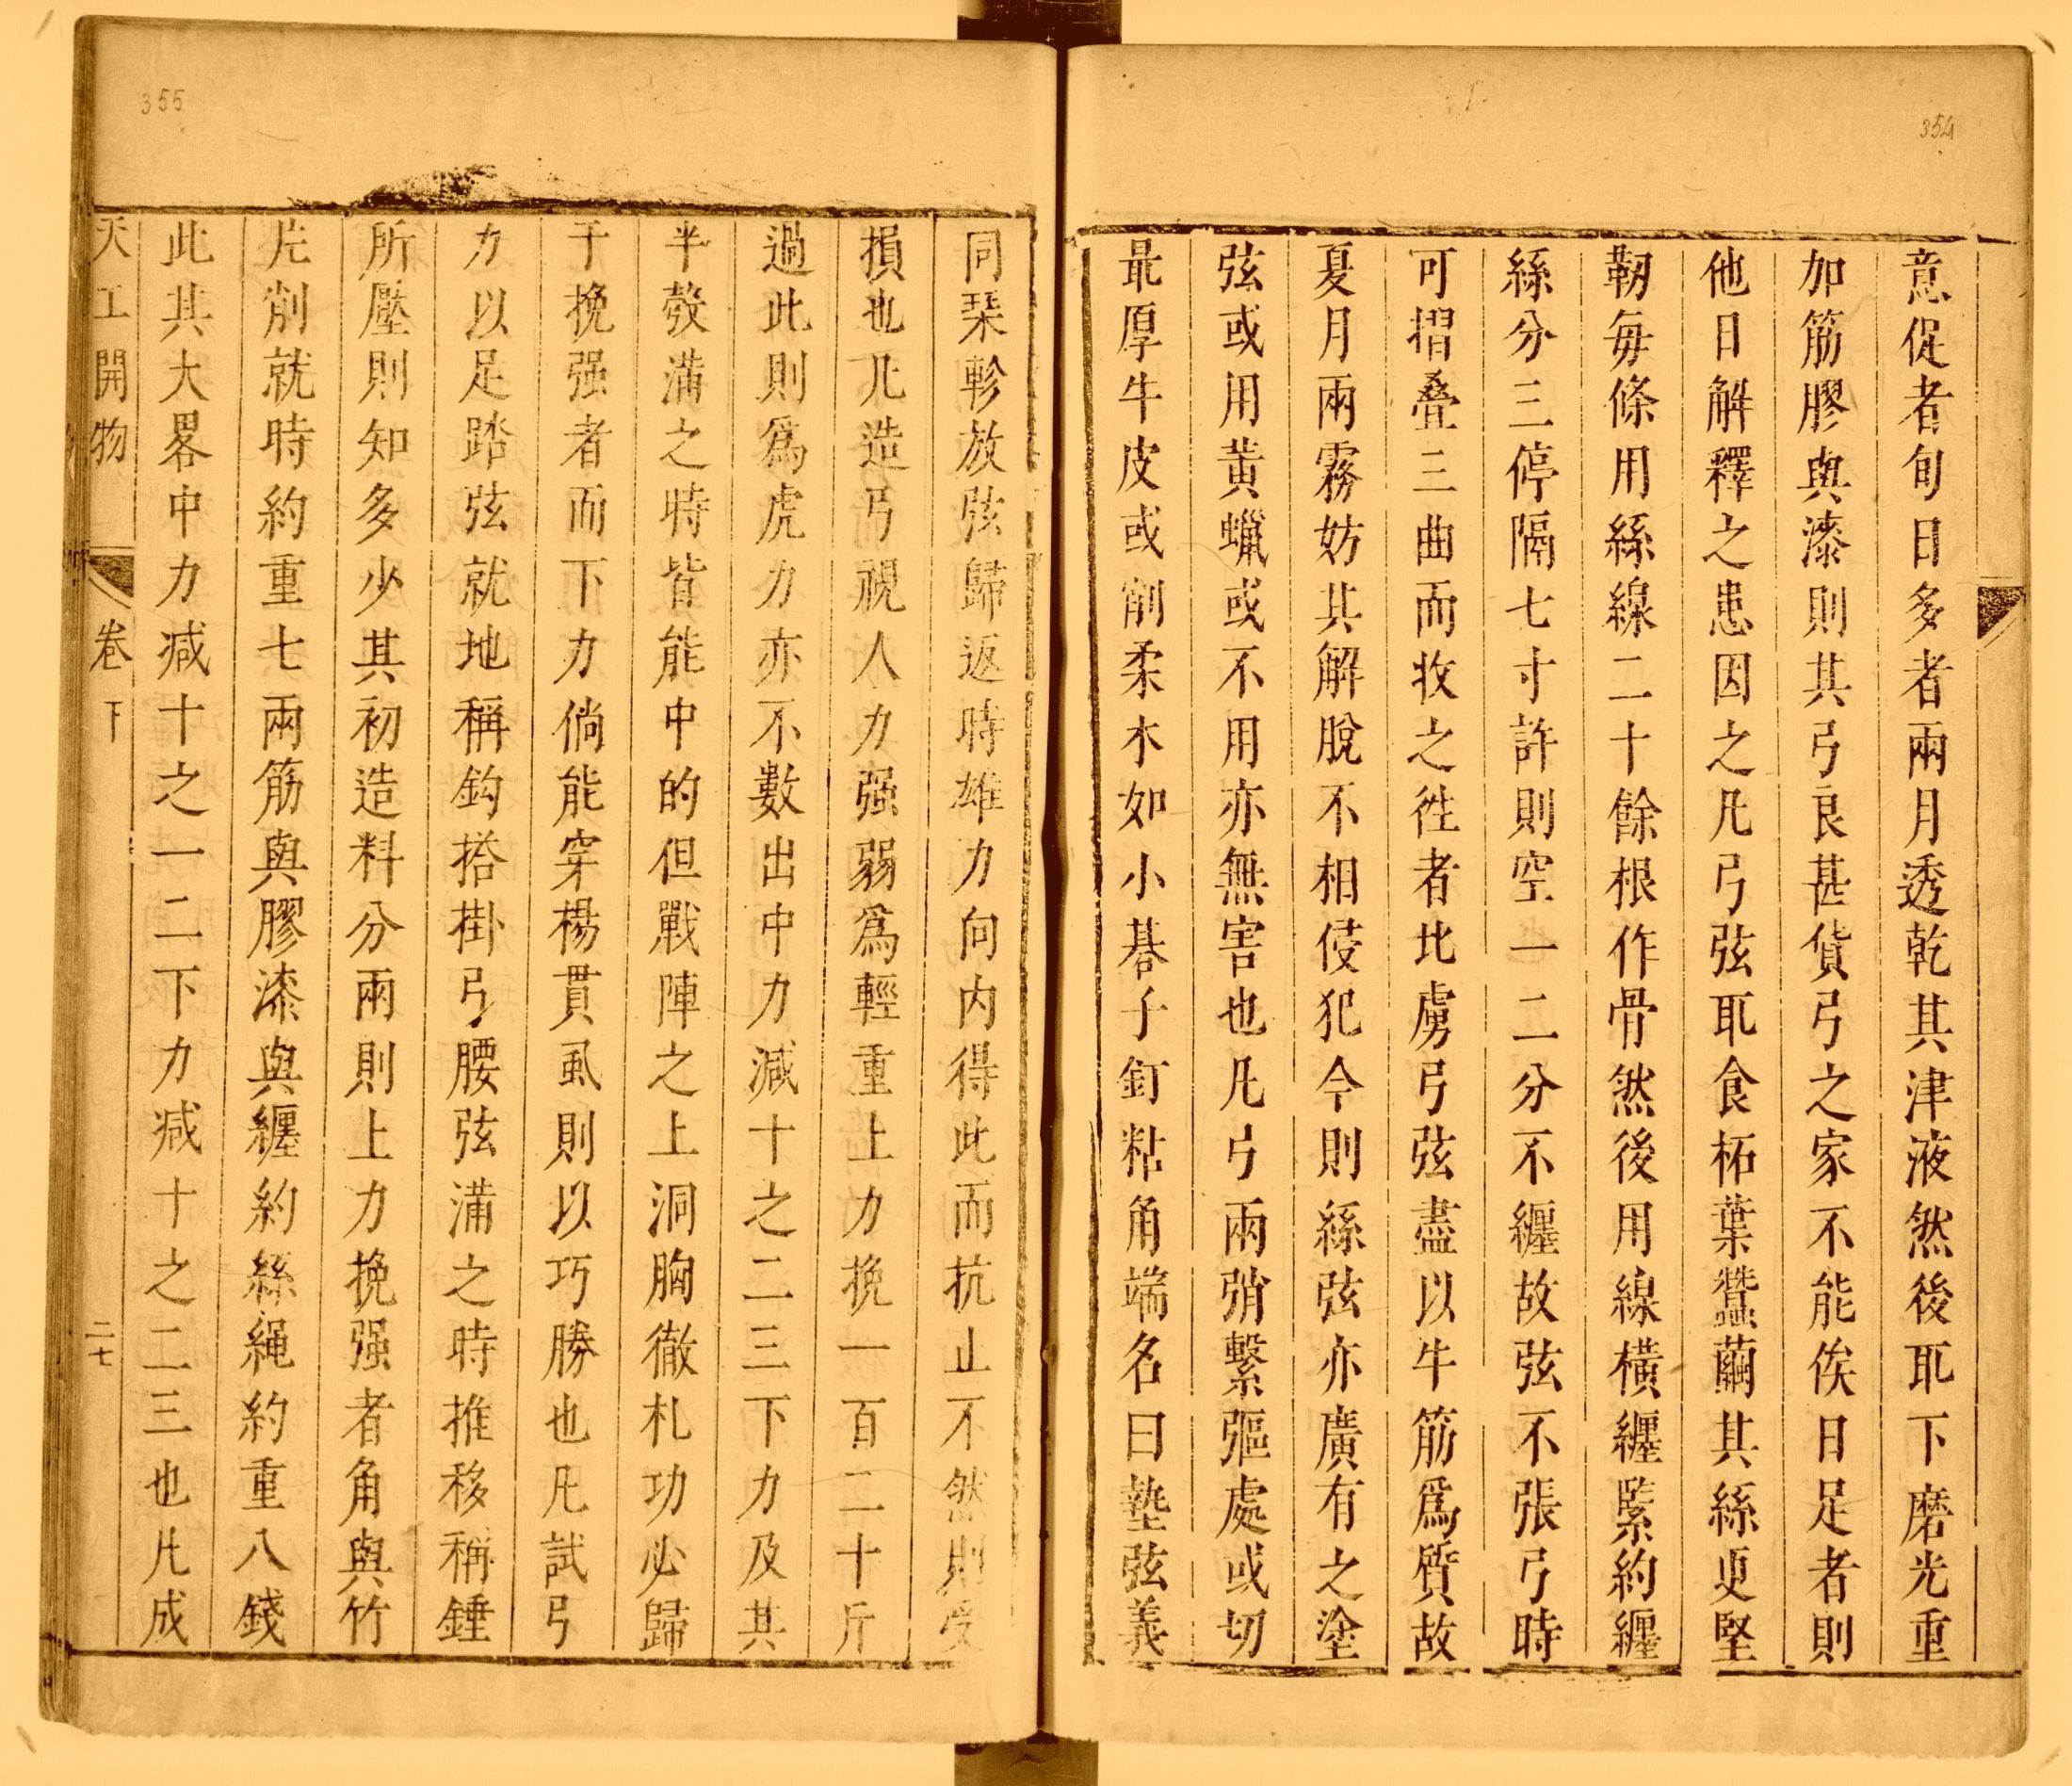 354
意促者旬日多者兩月透乾其津液然後取下磨光重
加筋膠與漆則其弓良甚貨弓之家不能俟日足者則
他日解釋之患因之凡弓弦取食柘葉蠶繭其絲更堅
韌每條用絲線二十餘根作骨然後用線橫纏緊約纏
絲分三停隔七寸許則空一二分不纏故弦不張弓時
可摺疊三曲而收之徃者北虜弓弦盡以牛筋為質故
夏月雨霧妨其解脫不相侵犯今則絲弦亦廣有之塗
弦或用黃蠟或不用亦無害也凡弓兩弰繫彄處或切
最厚牛皮或削柔木如小棊子釘粘角端名曰墊弦義
355
同琹軫放弦歸返時雄力向内得此而抗止不然則受
損也凡造弓視人力强弱為輕重上力挽一百二十斤
過此則為虎力亦不數出中力減十之二三下力及其
半彀滿之時皆能中的但戰陣之上洞胸徹札功必歸
于挽强者而下力倘能穿楊貫虱則以巧勝也凡試弓
力以足踏弦就地稱鈎搭掛弓腰弦滿之時推移稱錘
所壓則知多少其初造料分兩則上力挽强者角與竹
片削就時約重七兩筋與膠漆與纏約絲繩約重八錢
此其大畧中力减十之一二下力减十之二三也凡成
天工開物 卷下 二七